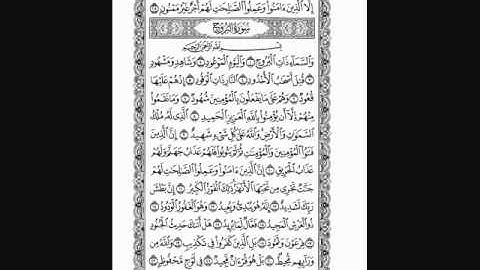 إِلَّا ٱلَّذِينَ ءَامَنُوا۟ وَعَمِلُوا۟ ٱلصَّٰلِحَٰتِ لَهُمْ أَجْرٌ غَيْرُ مَمْنُونٍ ٢٥
سُورَةُ البُرُوجِ
بِسْمِ ٱللَّهِ ٱلرَّحْمَٰنِ ٱلرَّحِيمِ
وَٱلسَّمَآءِ ذَاتِ ٱلْبُرُوجِ ١ وَٱلْيَوْمِ ٱلْمَوْعُودِ ٢ وَشَاهِدٍ وَمَشْهُودٍ
٣ قُتِلَ أَصْحَٰبُ ٱلْأُخْدُودِ ٤ ٱلنَّارِ ذَاتِ ٱلْوَقُودِ ٥ إِذْ هُمْ عَلَيْهَا
قُعُودٌ ٦ وَهُمْ عَلَىٰ مَا يَفْعَلُونَ بِٱلْمُؤْمِنِينَ شُهُودٌ ٧ وَمَا نَقَمُوا۟
مِنْهُمْ إِلَّآ أَن يُؤْمِنُوا۟ بِٱللَّهِ ٱلْعَزِيزِ ٱلْحَمِيدِ ٨ ٱلَّذِى لَهُۥ مُلْكُ
ٱلسَّمَٰوَٰتِ وَٱلْأَرْضِ وَٱللَّهُ عَلَىٰ كُلِّ شَىْءٍ شَهِيدٌ ٩ إِنَّ ٱلَّذِينَ
فَتَنُوا۟ ٱلْمُؤْمِنِينَ وَٱلْمُؤْمِنَٰتِ ثُمَّ لَمْ يَتُوبُوا۟ فَلَهُمْ عَذَابُ جَهَنَّمَ وَلَهُمْ
عَذَابُ ٱلْحَرِيقِ ١٠ إِنَّ ٱلَّذِينَ ءَامَنُوا۟ وَعَمِلُوا۟ ٱلصَّٰلِحَٰتِ لَهُمْ
جَنَّٰتٌ تَجْرِى مِن تَحْتِهَا ٱلْأَنْهَٰرُ ذَٰلِكَ ٱلْفَوْزُ ٱلْكَبِيرُ ١١ إِنَّ بَطْشَ
رَبِّكَ لَشَدِيدٌ ١٢ إِنَّهُۥ هُوَ يُبْدِئُ وَيُعِيدُ ١٣ وَهُوَ ٱلْغَفُورُ ٱلْوَدُودُ ١٤
ذُو ٱلْعَرْشِ ٱلْمَجِيدُ ١٥ فَعَّالٌ لِّمَا يُرِيدُ ١٦ هَلْ أَتَىٰكَ حَدِيثُ ٱلْجُنُودِ
١٧ فِرْعَوْنَ وَثَمُودَ ١٨ بَلِ ٱلَّذِينَ كَفَرُوا۟ فِى تَكْذِيبٍ ١٩ وَٱللَّهُ مِن
وَرَآئِهِم مُّحِيطٌۢ ٢٠ بَلْ هُوَ قُرْءَانٌ مَّجِيدٌ ٢١ فِى لَوْحٍ مَّحْفُوظٍۭ ٢٢